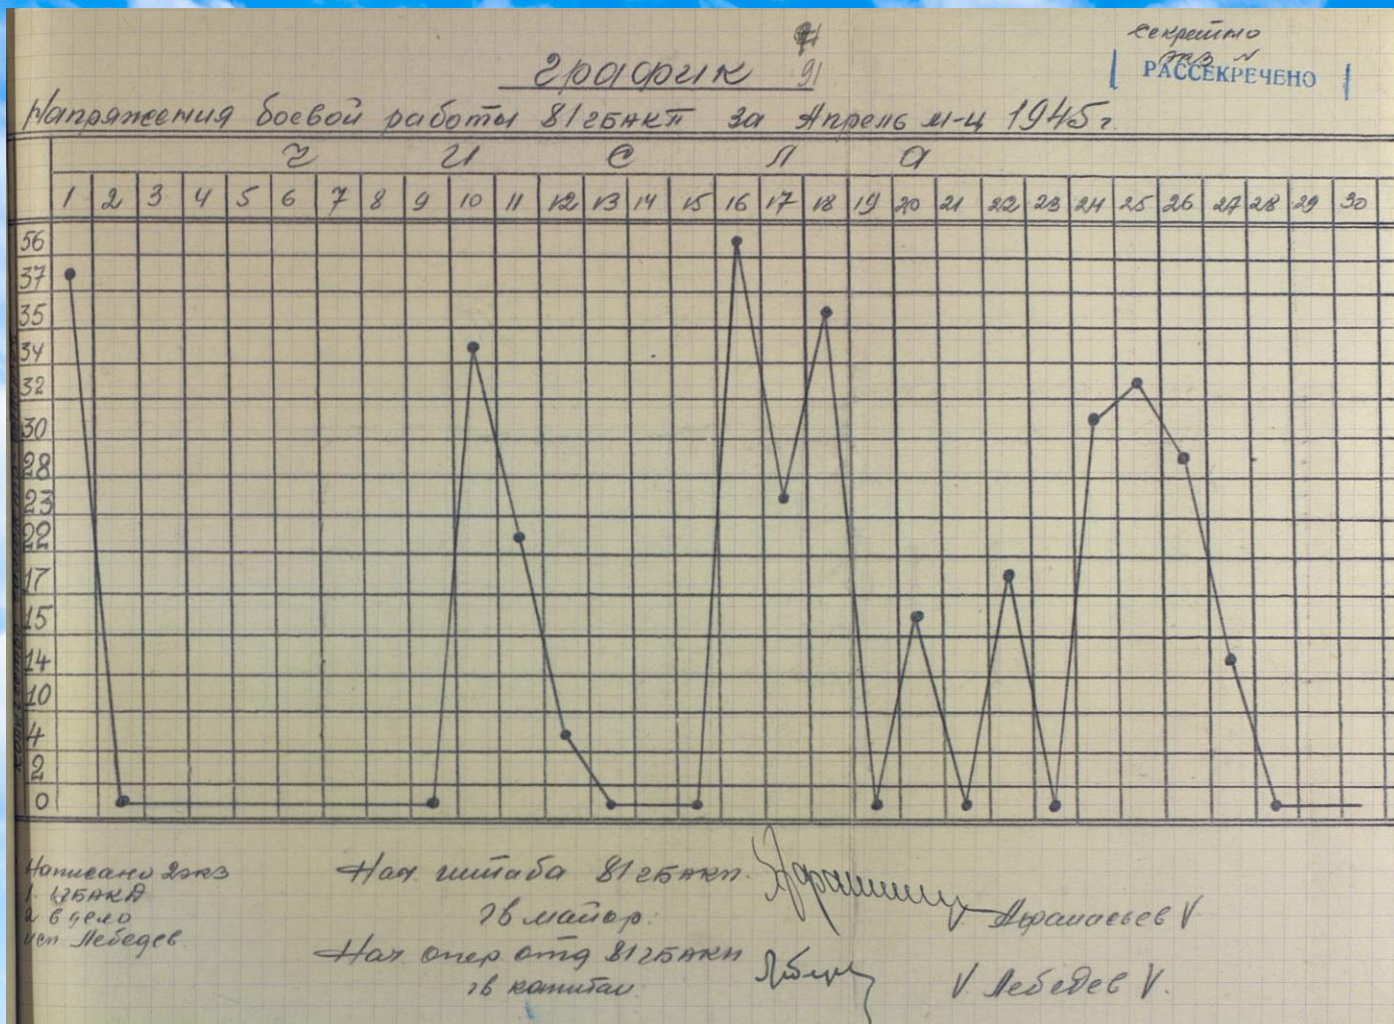 секретно
экз №
РАССЕКРЕЧЕНО
График
91
Напряжения боевой работы 81 гБАКП за Апрель м-ц 1945г.
Ч И С Л А
1 2 3 4 5 6 7 8 9 10 11 12 13 14 15 16 17 18 19 20 21 22 23 24 25 26 27 28 29 30
56
37
35
34
32
30
28
23
22
17
15
14
10
4
2
0
Написано 2 экз
1. 1гБАКД
2 в дело
исп Лебедев
Нач. штаба 81 гБАКП.
гв майор.
Афанасьев
Нач опер отд 81 гБАКП
гв капитан
Лебедев